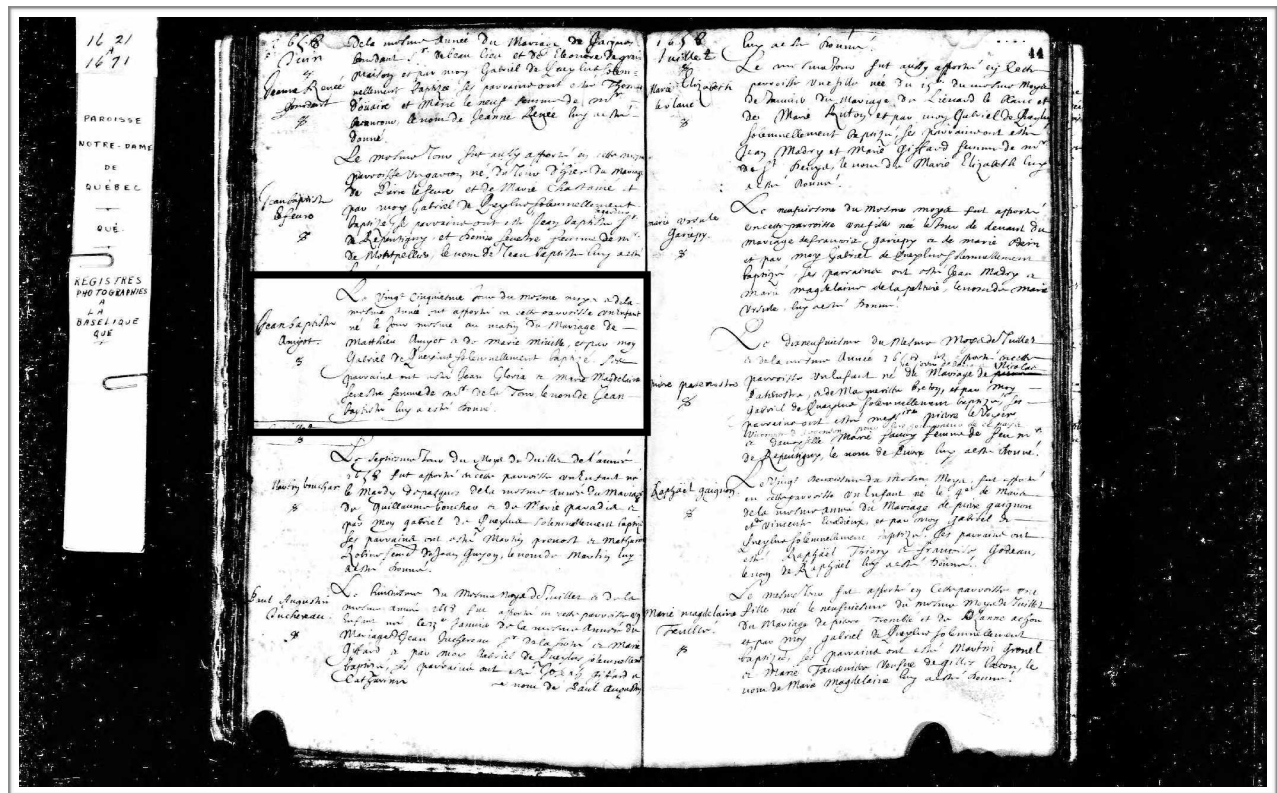 1621
A
1671
PAROISSE
NOTRE-DAME
DE
QUÉBEC
QUÉ.
REGISTRES
PHOTOGRAPHIES
A
LA
BASELIQUE
QUE
1658
Juin
Jeanne Renée
de la mesme Année du Mariage de Jacques
et par moy Gabriel de Queylus solem-
nellement baptizée ses parrains ont esté
et Marie le neuf femme de mr
le nom de Jeanne Renée luy a esté
donné.
Jean baptiste
le febure
Le mesme Jour fut aussy apporté en cette mesme
parroisse un garçon né du Jour d'hier du Mariage
de Pierre le febure et de Marie Chastaigne et
par moy Gabriel de Queylus solemnellement
baptizé ses parrains ont esté Jean baptiste
de Repentigny et Denise sevestre femme de mr
de Montpellier, le nom de Jean baptiste luy a esté
Jean baptiste
Amyot.
Le vingt cinquiesme Jour du mesme moys et de la
mesme Année fut apporté en cette parroisse un Enfant
né le Jour mesme au matin du Mariage de
Matthieu Amyot et de Marie Miville, et par moy
Gabriel de Queylus solemnellement baptizé ses
parrains ont esté Jean Gloria et Marie Magdelaine
sevestre femme de mr de la Tour le nom de Jean
baptiste luy a esté donné.
Martin bouchar
Le septiesme Jour du Moys de Juillet de l'année
1658 fut apporté en cette parroisse un Enfant né
le Mardy de pasques de la mesme Année du Mariage
de Guillaume bouchar et de Marie paradis et
par moy gabriel de Queylus solemnellement baptizé
ses parrains ont esté Martin prevost et Mathurine
Robin femme de Jean Guyon, le nom de Martin luy
a esté donné.
Paul Augustin
Juchereau.
Le huictiesme du Mesme Moys de Juillet et de la
mesme année 1658 fut apporté en cette parroisse un
Enfant né le Janvier de la mesme Année du
Mariage de Jean Juchereau Sr de la ferté et Marie
Gifard et par moy Gabriel de Queylus solemnellement
baptizé, ses parrains ont esté Gifard et
Catharine le nom de Paul Augustin
44
1658
Juillet
luy a esté donné.
Marie Elizabeth
le blanc
Le mesme Jour fut aussy apporté en cette
parroisse une fille née du 15e du mesme Moys
du Mariage de Liénard le blanc et
de Marie Riton, et par moy Gabriel de Queylus
solemnellement baptizée, ses parrains ont esté
Jean Madry et Marie Giffard femme de mr
le nom de Marie Elizabeth luy
a esté donné.
Marie Ursule
Gariepy.
Le neufiesme du Mesme moys fut apporté
en cette parroisse une fille née le Jour de devant du
mariage de francois gariepy et de marie
et par moy Gabriel de Queylus solemnellement
baptizée, ses parrains ont esté Jean Madry et
Marie magdelaine de la peltrie, le nom de Marie
Ursule luy a esté donné.
Le dixneufiesme du Mesme Moys de Juillet
et de la mesme Année 1658 fut apporté en cette
parroisse un Enfant né du Mariage de
et de Marguerite breton, et par moy
gabriel de Queylus solemnellement baptizé, ses
parrains ont esté
damoiselle Marie favery femme de feu mr
de Repentigny, le nom de Pierre luy a esté donné.
Raphaël gaignon.
Le vingt deuxiesme du Mesme Moys fut apporté
en cette parroisse un Enfant né le 4e de Mars
de la mesme année du Mariage de pierre gaignon
et Vincente Eradieux, et par moy gabriel de
Queylus solemnellement baptizé, ses parrains ont
esté Raphaël et francoise godeau,
le nom de Raphaël luy a esté donné.
Marie Magdelaine
Le mesme Jour fut apporté en Cette parroisse une
fille née le neufiesme du mesme Moys de Juillet
du Mariage de pierre et de Jeanne
et par moy gabriel de Queylus solemnellement
baptizée, ses parrains ont esté Martin Grouvel
et Marie Tavernier veufve de gilles bacon, le
nom de Marie Magdelaine luy a esté donné.